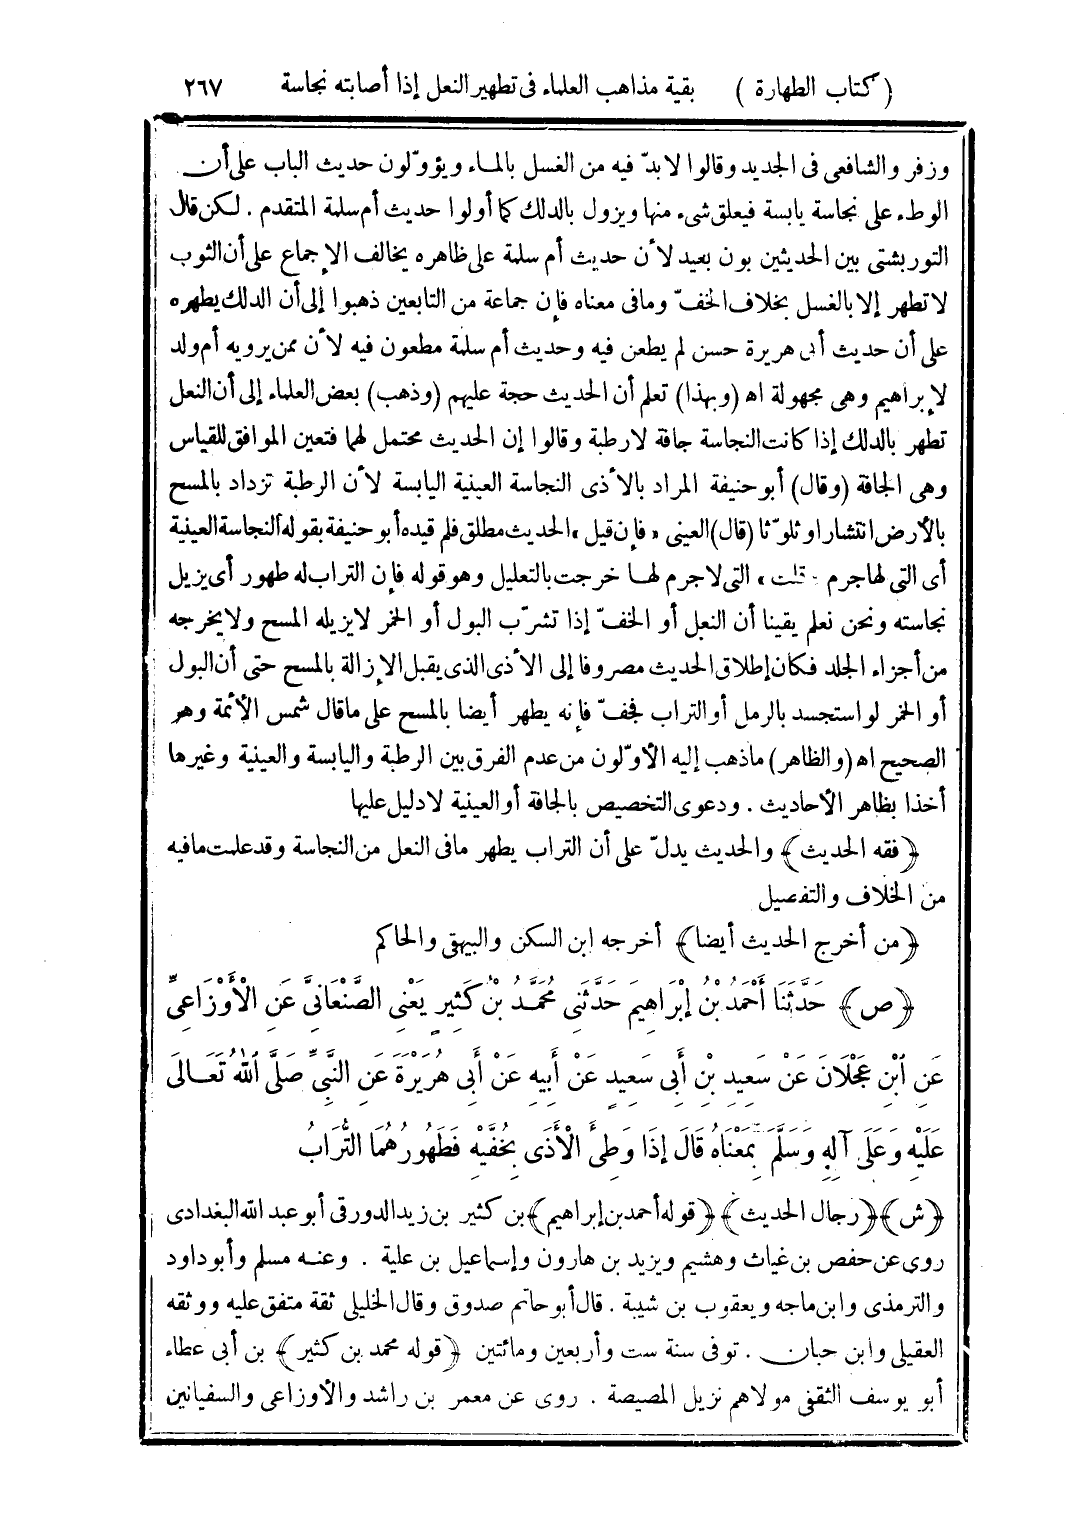 ( كتاب الطهارة ) بقية مذاهب العلماء فى تطهير النعل إذا أصابته نجاسة ٢٦٧
وزفر والشافعى فى الجديد وقالوا لابدّ فيه من الغسل بالماء ويؤوّلون حديث الباب على أن
الوطء على نجاسة يابسة فيعلق شىء منها ويزول بالدلك كما أولوا حديث أم سلمة المتقدم . لكن قال
التوربشتى بين الحديثين بون بعيد لأن حديث أم سلمة على ظاهره يخالف الإجماع على أن الثوب
لا تطهر إلا بالغسل بخلاف الخفّ ومافى معناه فإن جماعة من التابعين ذهبوا إلى أن الدلك يطهره
على أن حديث أبى هريرة حسن لم يطعن فيه وحديث أم سلمة مطعون فيه لأن ممن يرويه أم ولد
لإبراهيم وهى مجهولة اه (وبهذا) تعلم أن الحديث حجة عليهم (وذهب) بعض العلماء إلى أن النعل
تطهر بالدلك إذا كانت النجاسة جافة لارطبة وقالوا إن الحديث محتمل لهما فتعين الموافق للقياس
وهى الجافة (وقال) أبو حنيفة المراد بالأذى النجاسة العينية اليابسة لأن الرطبة تزداد بالمسح
بالأرض انتشارا وتلوّثا (قال) العينى « فإن قيل » الحديث مطلق فلم قيده أبو حنيفة بقوله النجاسة العينية
أى التى لها جرم « قلت » التى لاجرم لها خرجت بالتعليل وهو قوله فإن التراب له طهور أى يزيل
نجاسته ونحن نعلم يقينا أن النعل أو الخفّ إذا تشرّب البول أو الخمر لايزيله المسح ولا يخرجه
من أجزاء الجلد فكان إطلاق الحديث مصروفا إلى الأذى الذى يقبل الإزالة بالمسح حتى أن البول
أو الخمر لو استجسد بالرمل أو التراب فجفّ فإنه يطهر أيضا بالمسح على ماقال شمس الأئمة وهو
الصحيح اه (والظاهر) ماذهب إليه الأوّلون من عدم الفرق بين الرطبة واليابسة والعينية وغيرها
أخذا بظاهر الأحاديث . ودعوى التخصيص بالجافة أو العينية لادليل عليها
﴿فقه الحديث﴾ والحديث يدلّ على أن التراب يطهر مافى النعل من النجاسة وقد علمت مافيه
من الخلاف والتفصيل
﴿من أخرج الحديث أيضا﴾ أخرجه ابن السكن والبيهقى والحاكم
﴿ص﴾ حَدَّثَنَا أَحْمَدُ بْنُ إِبْرَاهِيمَ حَدَّثَنِى مُحَمَّدُ بْنُ كَثِيرٍ يَعْنِى الصَّنْعَانِىَّ عَنِ الْأَوْزَاعِىِّ
عَنِ ابْنِ عَجْلَانَ عَنْ سَعِيدِ بْنِ أَبِى سَعِيدٍ عَنْ أَبِيهِ عَنْ أَبِى هُرَيْرَةَ عَنِ النَّبِىِّ صَلَّى اللهُ تَعَالَى
عَلَيْهِ وَعَلَى آلِهِ وَسَلَّمَ بِمَعْنَاهُ قَالَ إِذَا وَطِئَ الْأَذَى بِخُفَّيْهِ فَطَهُورُهُمَا التُّرَابُ
﴿ش﴾ ﴿رجال الحديث﴾ ﴿قوله أحمد بن إبراهيم﴾ بن كثير بن زيد الدورقى أبو عبد الله البغدادى
روى عن حفص بن غياث وهشيم ويزيد بن هارون وإسماعيل بن علية . وعنه مسلم وأبو داود
والترمذى وابن ماجه ويعقوب بن شيبة . قال أبو حاتم صدوق وقال الخليلى ثقة متفق عليه ووثقه
العقيلى وابن حبان . توفى سنة ست وأربعين ومائتين ﴿قوله محمد بن كثير﴾ بن أبى عطاء
أبو يوسف الثقفى مولاهم نزيل المصيصة . روى عن معمر بن راشد والأوزاعى والسفيانين